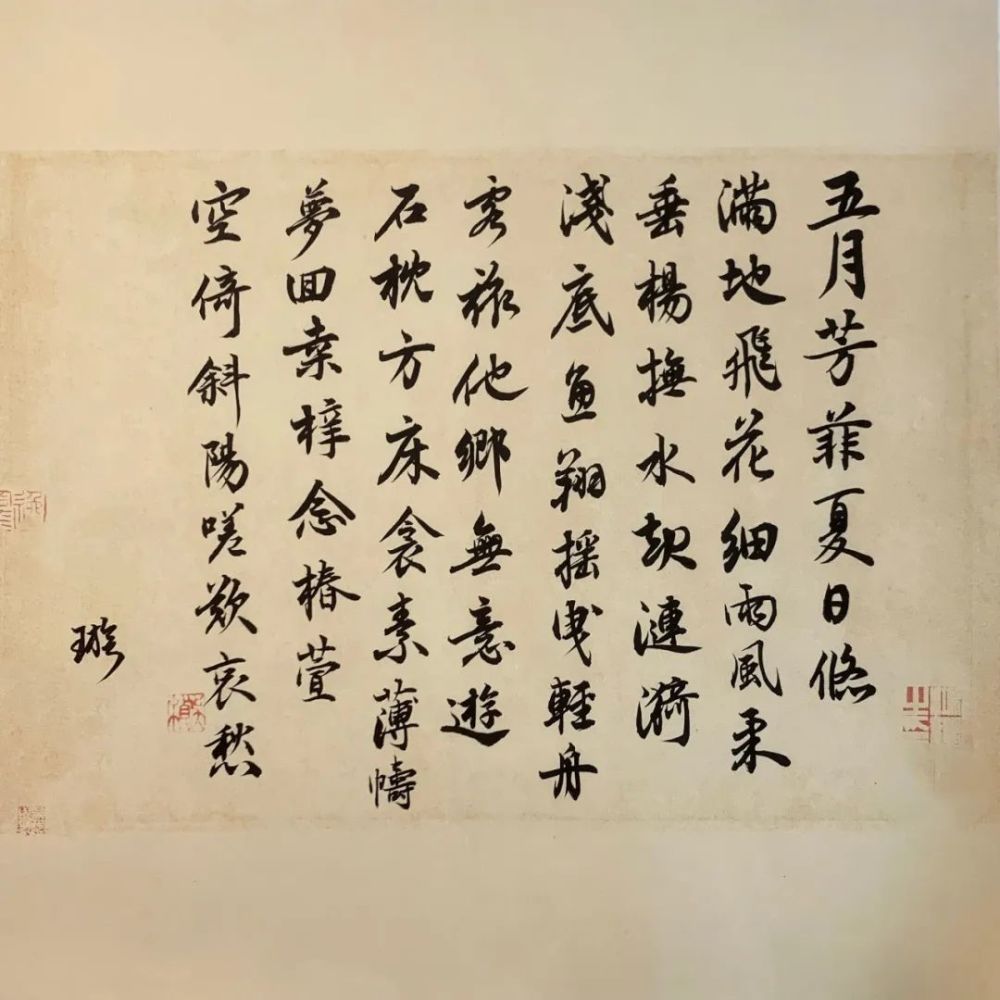 五月芳菲夏日悠
滿地飛花細雨風柔
垂楊撫水起漣漪
淺底魚翔搖曳輕舟
客旅他鄉無意遊
石枕方床衾素薄幬
夢回桑梓念椿萱
空倚斜陽嗟歎哀愁
璇